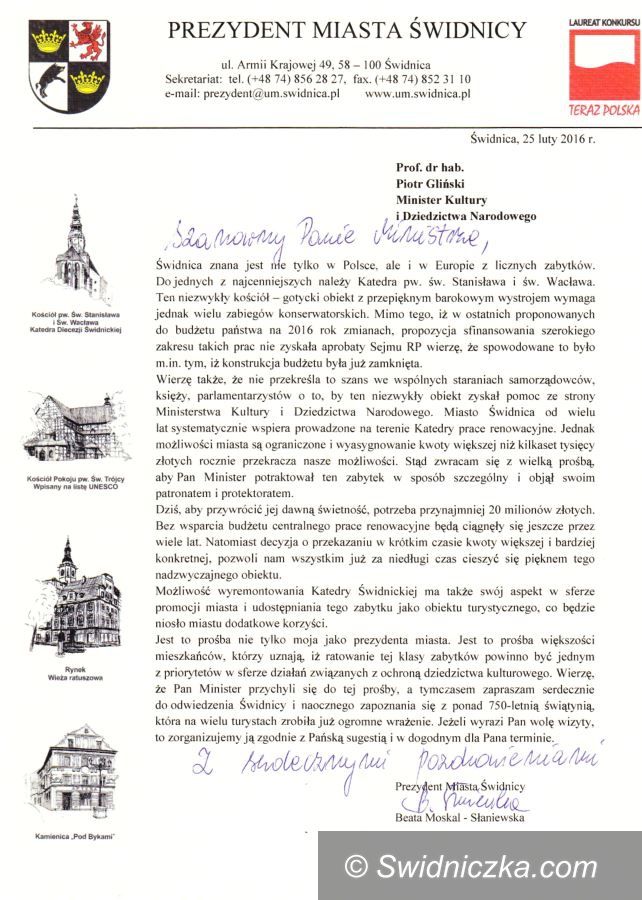 PREZYDENT MIASTA ŚWIDNICY
ul. Armii Krajowej 49, 58 – 100 Świdnica
Sekretariat: tel. (+48 74) 856 28 27, fax. (+48 74) 852 31 10
e-mail: prezydent@um.swidnica.pl www.um.swidnica.pl
LAUREAT KONKURSU
TERAZ POLSKA
Świdnica, 25 luty 2016 r.
Prof. dr hab.
Piotr Gliński
Minister Kultury
i Dziedzictwa Narodowego
Szanowny Panie Ministrze,
Świdnica znana jest nie tylko w Polsce, ale i w Europie z licznych zabytków.
Do jednych z najcenniejszych należy Katedra pw. św. Stanisława i św. Wacława.
Ten niezwykły kościół – gotycki obiekt z przepięknym barokowym wystrojem wymaga
jednak wielu zabiegów konserwatorskich. Mimo tego, iż w ostatnich proponowanych
do budżetu państwa na 2016 rok zmianach, propozycja sfinansowania szerokiego
zakresu takich prac nie zyskała aprobaty Sejmu RP wierzę, że spowodowane to było
m.in. tym, iż konstrukcja budżetu była już zamknięta.
Wierzę także, że nie przekreśla to szans we wspólnych staraniach samorządowców,
księży, parlamentarzystów o to, by ten niezwykły obiekt zyskał pomoc ze strony
Ministerstwa Kultury i Dziedzictwa Narodowego. Miasto Świdnica od wielu
lat systematycznie wspiera prowadzone na terenie Katedry prace renowacyjne. Jednak
możliwości miasta są ograniczone i wyasygnowanie kwoty większej niż kilkaset tysięcy
złotych rocznie przekracza nasze możliwości. Stąd zwracam się z wielką prośbą,
aby Pan Minister potraktował ten zabytek w sposób szczególny i objął swoim
patronatem i protektoratem.
Dziś, aby przywrócić jej dawną świetność, potrzeba przynajmniej 20 milionów złotych.
Bez wsparcia budżetu centralnego prace renowacyjne będą ciągnęły się jeszcze przez
wiele lat. Natomiast decyzja o przekazaniu w krótkim czasie kwoty większej i bardziej
konkretnej, pozwoli nam wszystkim już za niedługi czas cieszyć się pięknem tego
nadzwyczajnego obiektu.
Możliwość wyremontowania Katedry Świdnickiej ma także swój aspekt w sferze
promocji miasta i udostępniania tego zabytku jako obiektu turystycznego, co będzie
niosło miastu dodatkowe korzyści.
Jest to prośba nie tylko moja jako prezydenta miasta. Jest to prośba większości
mieszkańców, którzy uznają, iż ratowanie tej klasy zabytków powinno być jednym
z priorytetów w sferze działań związanych z ochroną dziedzictwa kulturowego. Wierzę,
że Pan Minister przychyli się do tej prośby, a tymczasem zapraszam serdecznie
do odwiedzenia Świdnicy i naocznego zapoznania się z ponad 750-letnią świątynią,
która na wielu turystach zrobiła już ogromne wrażenie. Jeżeli wyrazi Pan wolę wizyty,
to zorganizujemy ją zgodnie z Pańską sugestią i w dogodnym dla Pana terminie.
Z serdecznymi pozdrowieniami
Prezydent Miasta Świdnicy
Beata Moskal - Słaniewska
Kościół pw. Św. Stanisława
i Św. Wacława
Katedra Diecezji Świdnickiej
Kościół Pokoju pw. Św. Trójcy
Wpisany na listę UNESCO
Rynek
Wieża ratuszowa
Kamienica „Pod Bykami”
© Swidniczka.com